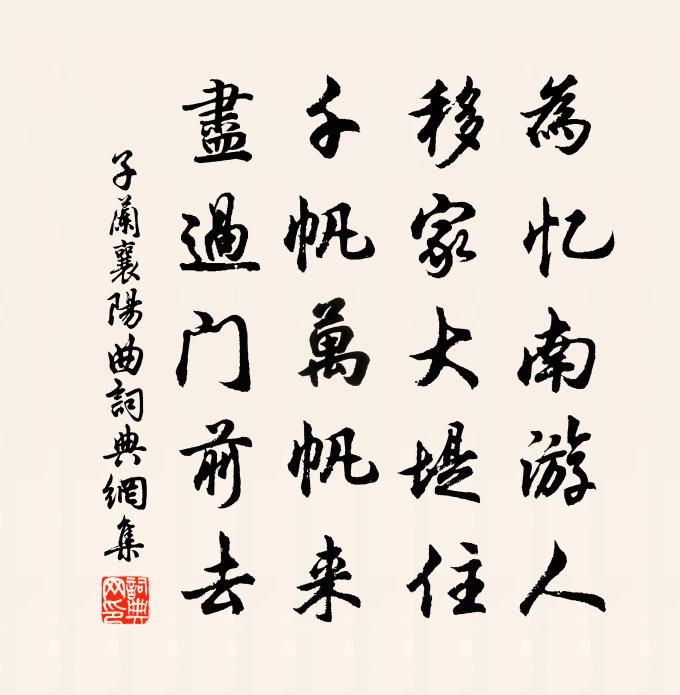 為忆南游人
移家大堤住
千帆萬帆来
盡過门前去
子蘭襄陽曲詞典網集
詞典網印